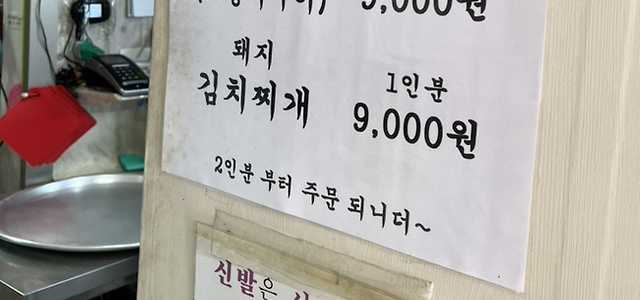 9,000원
돼지
김치찌개 1인분
9,000원
2인분 부터 주문 되니더~
신발은